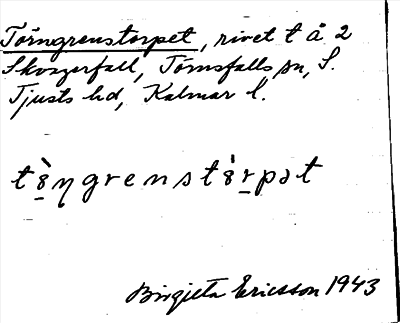 Törngrenstorpet, rivet t å 2
Skvagerfall, Törnsfalls sn, S.
Tjusts hd, Kalmar l.
tö̀ŋgrenstö̀rpət
Birgitta Ericsson 1943